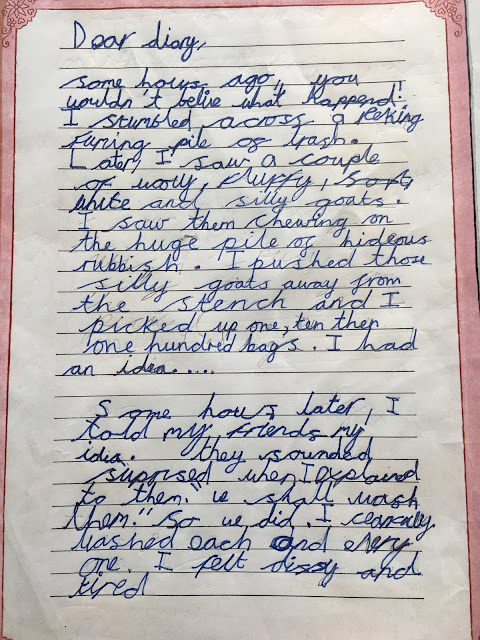 Dear diary,
some hours ago, you
wouldn't belive what happend!
I stumbled across a Reking
fuming pile of trash.
Later, I saw a couple
of wooly, fluffy, soft,
white and silly goats.
I saw them chewing on
the huge pile of hideous
rubbish. I pushed those
silly goats away from
the stench and I
picked up one, ten then
one hundred bags. I had
an idea.....
Some hours later, I
told my friends my
idea. they sounded
supprised when I explained
to them. "we shall wash
them." So we did. I
washed each and every
one. I felt dissy and
tired